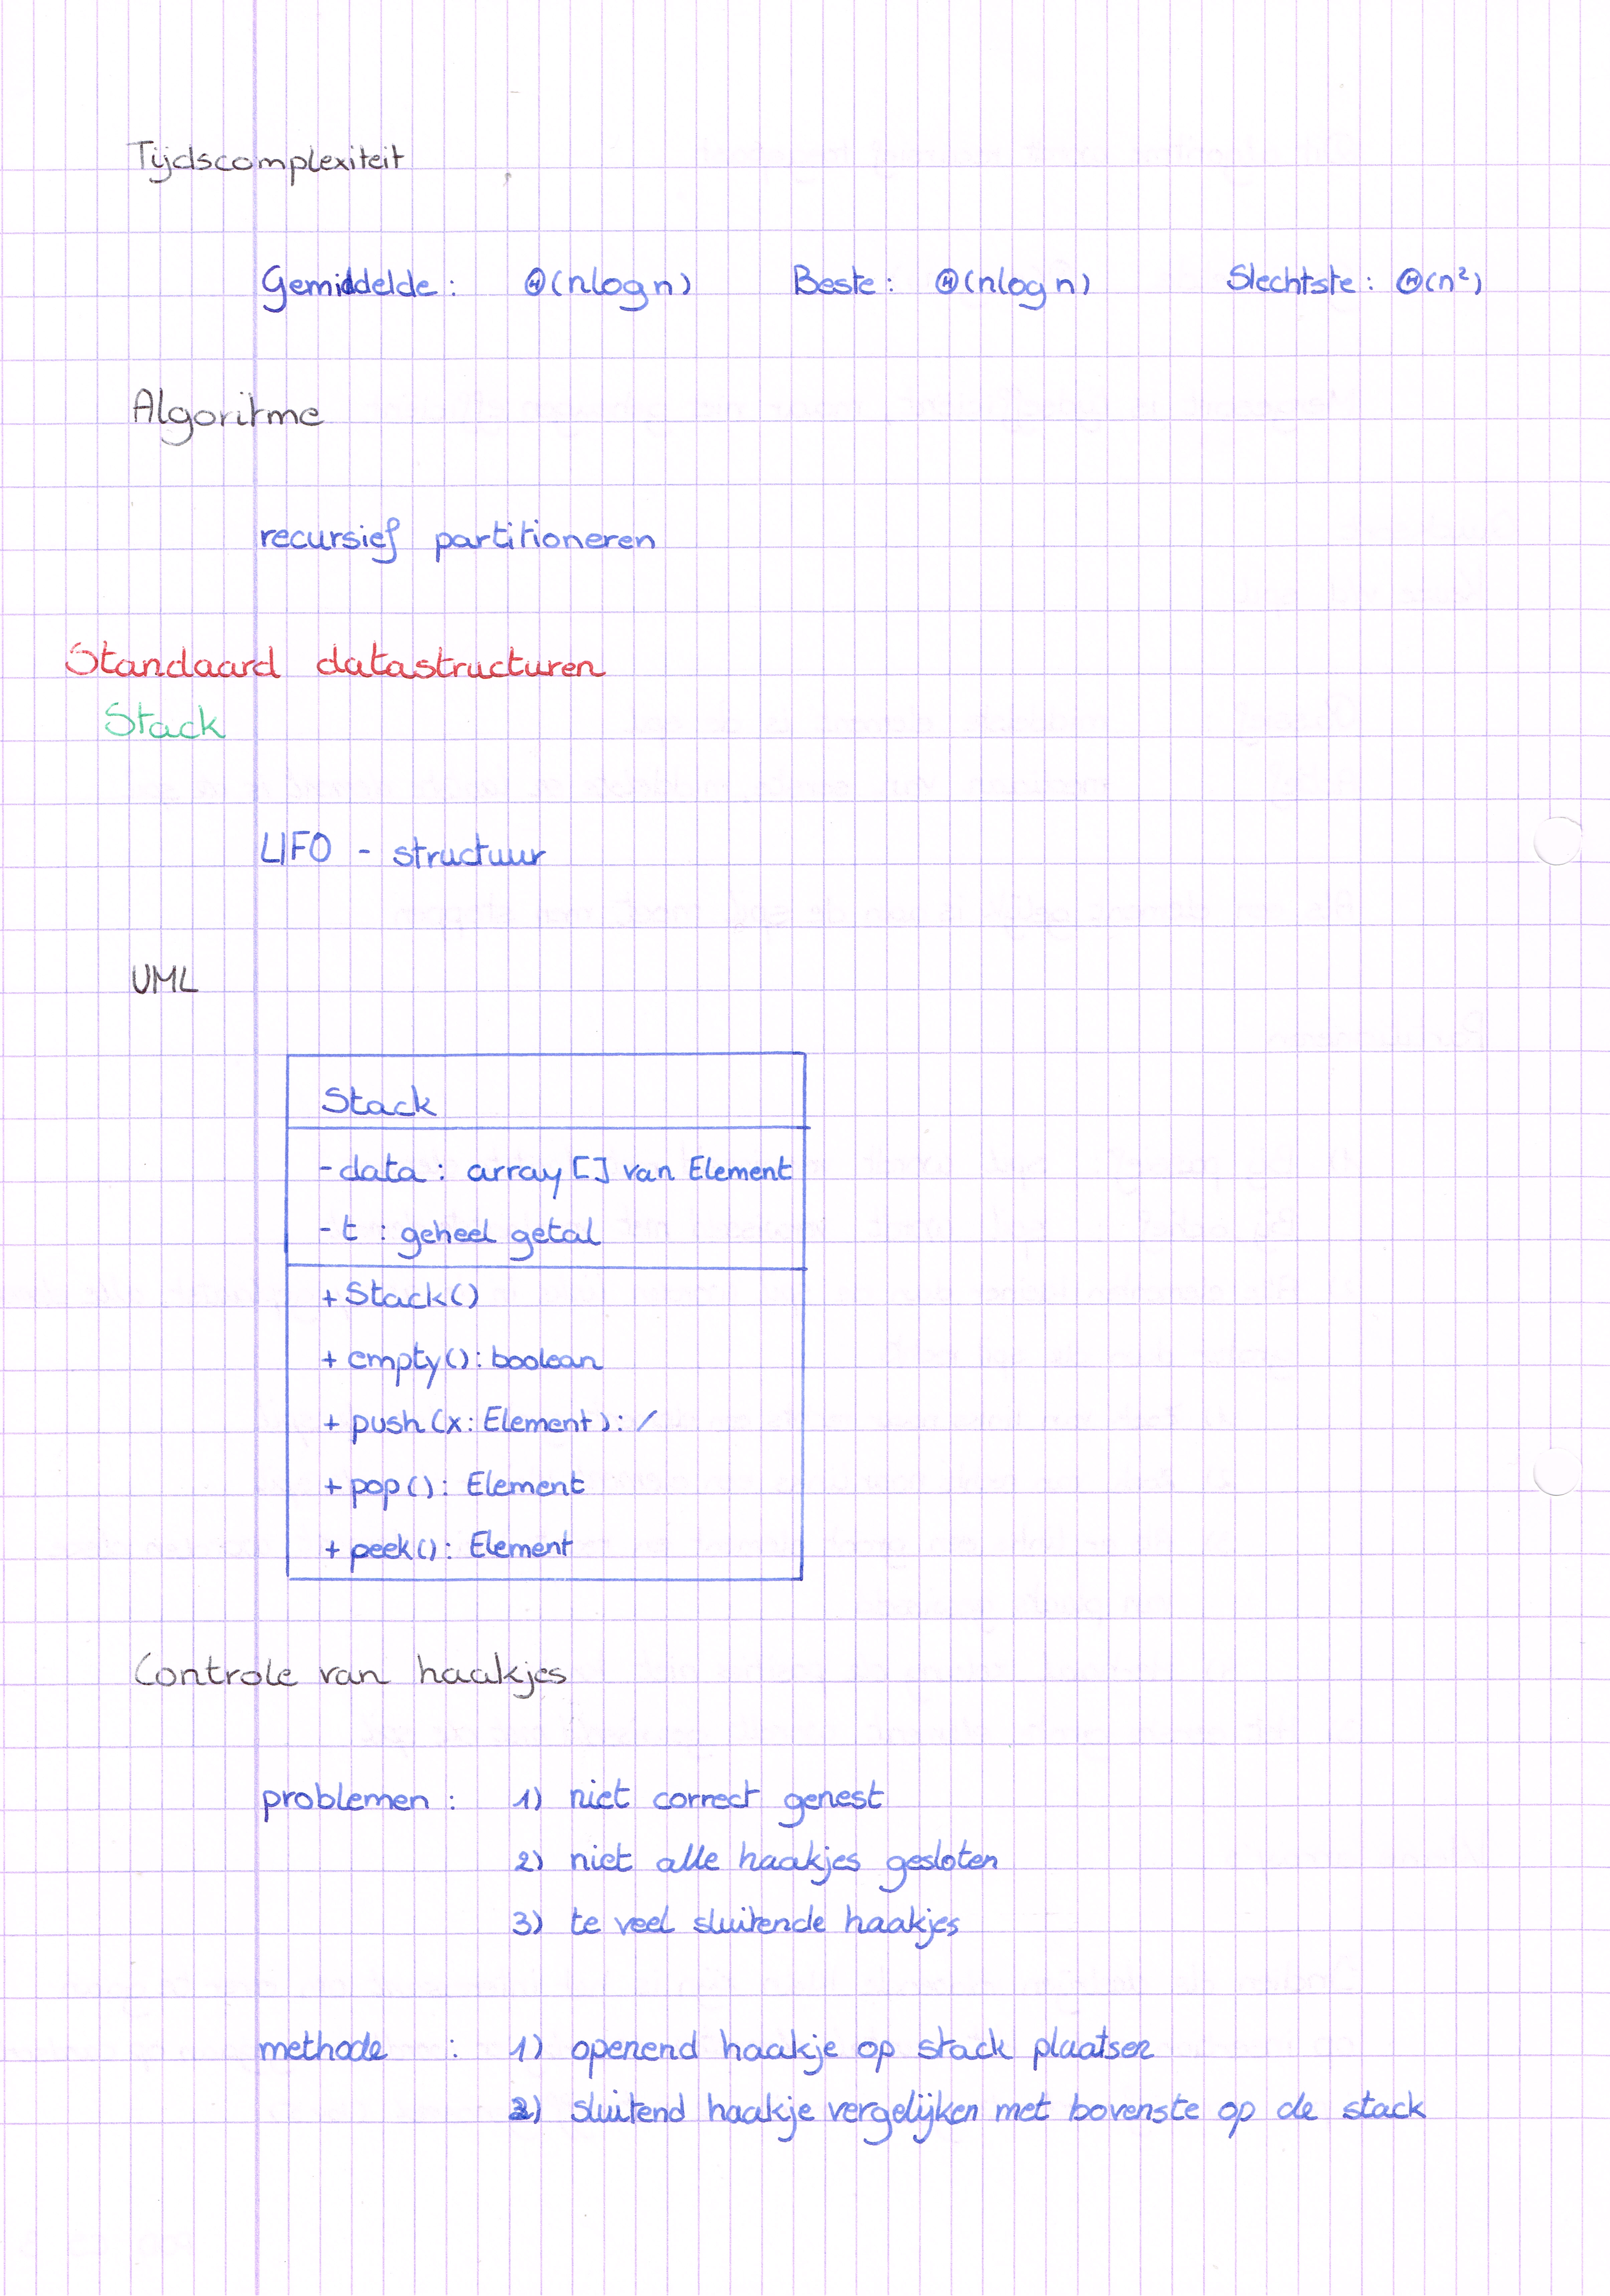 Tijdscomplexiteit
Gemiddelde : Θ(nlog n) Beste : Θ(nlog n) Slechtste : Θ(n²)
Algoritme
recursief partitioneren
Standaard datastructuren
Stack
LIFO - structuur
UML
Stack
- data : array [] van Element
- t : geheel getal
+ Stack()
+ empty() : boolean
+ push (x : Element) : /
+ pop () : Element
+ peek() : Element
Controle van haakjes
problemen : 1) niet correct genest
2) niet alle haakjes gesloten
3) te veel sluitende haakjes
methode : 1) openend haakje op stack plaatsen
2) sluitend haakje vergelijken met bovenste op de stack